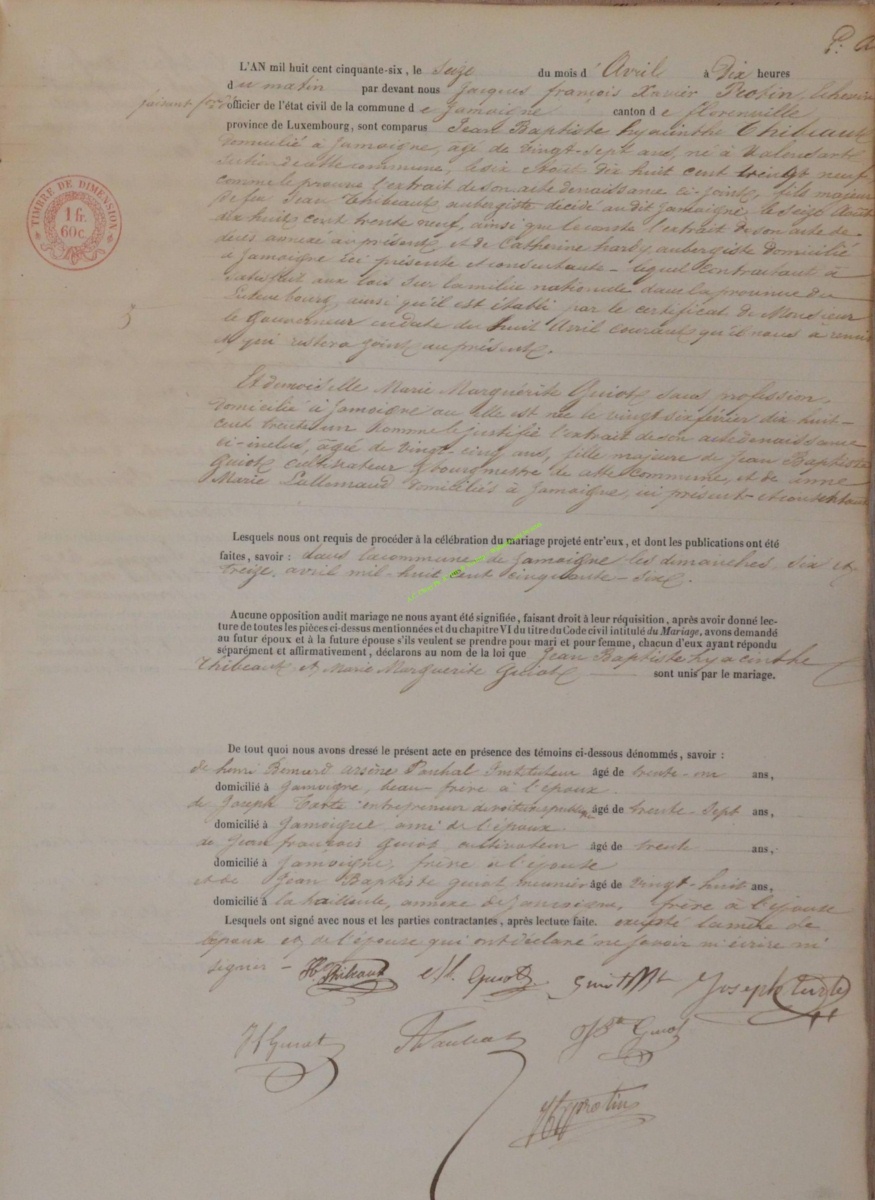 P. A
L'AN mil huit cent cinquante-six, le Seize du mois d'Avril à Dix heures
du matin par devant nous Jacques françois Xavier Protin, Echevin
faisant fons officier de l'état civil de la commune de Jamoigne canton de florenville
province de Luxembourg, sont comparus Jean Baptiste hyacinthe Thibeaux
domicilié à Jamoigne, agé de Vingt-Sept ans, né à Valansart
Section de cette commune, le six Aout Dix huit cent vingt neuf
comme le prouve l'extrait de son acte de naissance ci-joint, fils majeur
de feu Jean Thibeaux aubergiste décédé audit Jamoigne le Seize Aout
dix huit cent trente neuf, ainsi que le constate l'extrait de son acte de
décès annexé au présent et de Catherine aubergiste domicilié
à Jamoigne ici présente et consentante - lequel contractant à
satisfait aux lois sur la milice nationale dans la province du
Luxembourg, ainsi qu'il est établi par le certificat de Monsieur
le Gouverneur en date du huit Avril courant qu'il nous à remis
et qui restera joint au présent.
Et demoiselle Marie Marguérite Guiot, sans profession,
domicilié à Jamoigne ou elle est née le vingt six février dix huit
cent trente un comme le justifie l'extrait de son acte de naissance
ci-inclus, agée de Vingt-cinq ans, fille majeure de Jean Baptiste
Guiot Cultivateur & bourgmestre de cette Commune, et de anne
Marie Lallemand domiciliés à Jamoigne, ici présents et consentants
Lesquels nous ont requis de procéder à la célébration du mariage projeté entr'eux, et dont les publications ont été
faites, savoir : dans la commune de Jamoigne les dimanches, six et
treize, avril mil-huit cent cinquante-six.
Aucune opposition audit mariage ne nous ayant été signifiée, faisant droit à leur réquisition, après avoir donné lec-
ture de toutes les pièces ci-dessus mentionnées et du chapitre VI du titre du Code civil intitulé du Mariage, avons demandé
au futur époux et à la future épouse s'ils veulent se prendre pour mari et pour femme, chacun d'eux ayant répondu
séparément et affirmativement, déclarons au nom de la loi que Jean Baptiste hyacinthe
Thibeaux et Marie Marguerite Guiot sont unis par le mariage.
De tout quoi nous avons dressé le présent acte en présence des témoins ci-dessous dénommés, savoir :
de henri Bernard arsène Pauchal Instituteur âgé de trente-un ans,
domicilié à Jamoigne, beau-frère à l'époux.
de Joseph entrepreneur de voitures publiques âgé de trente-Sept ans,
domicilié à Jamoigne ami de l'époux
de Jean françois Guiot cultivateur âgé de trente ans,
domicilié à Jamoigne, frère à l'épouse
et de Jean Baptiste guiot, meunier âgé de vingt-huit ans,
domicilié à la hailleule, annexe de Jamoigne, frère à l'épouse
Lesquels ont signé avec nous et les parties contractantes, après lecture faite. excepté la mère de
l'époux et de l'épouse qui ont déclaré ne savoir ni écrire ni
signer - Hte Thibeaux M. Guiot Guiot Joseph
Jf Guiot Pauchal JBte Guiot
Jfx protin
TIMBRE DE DIMENSION
1 fr.
60 c.